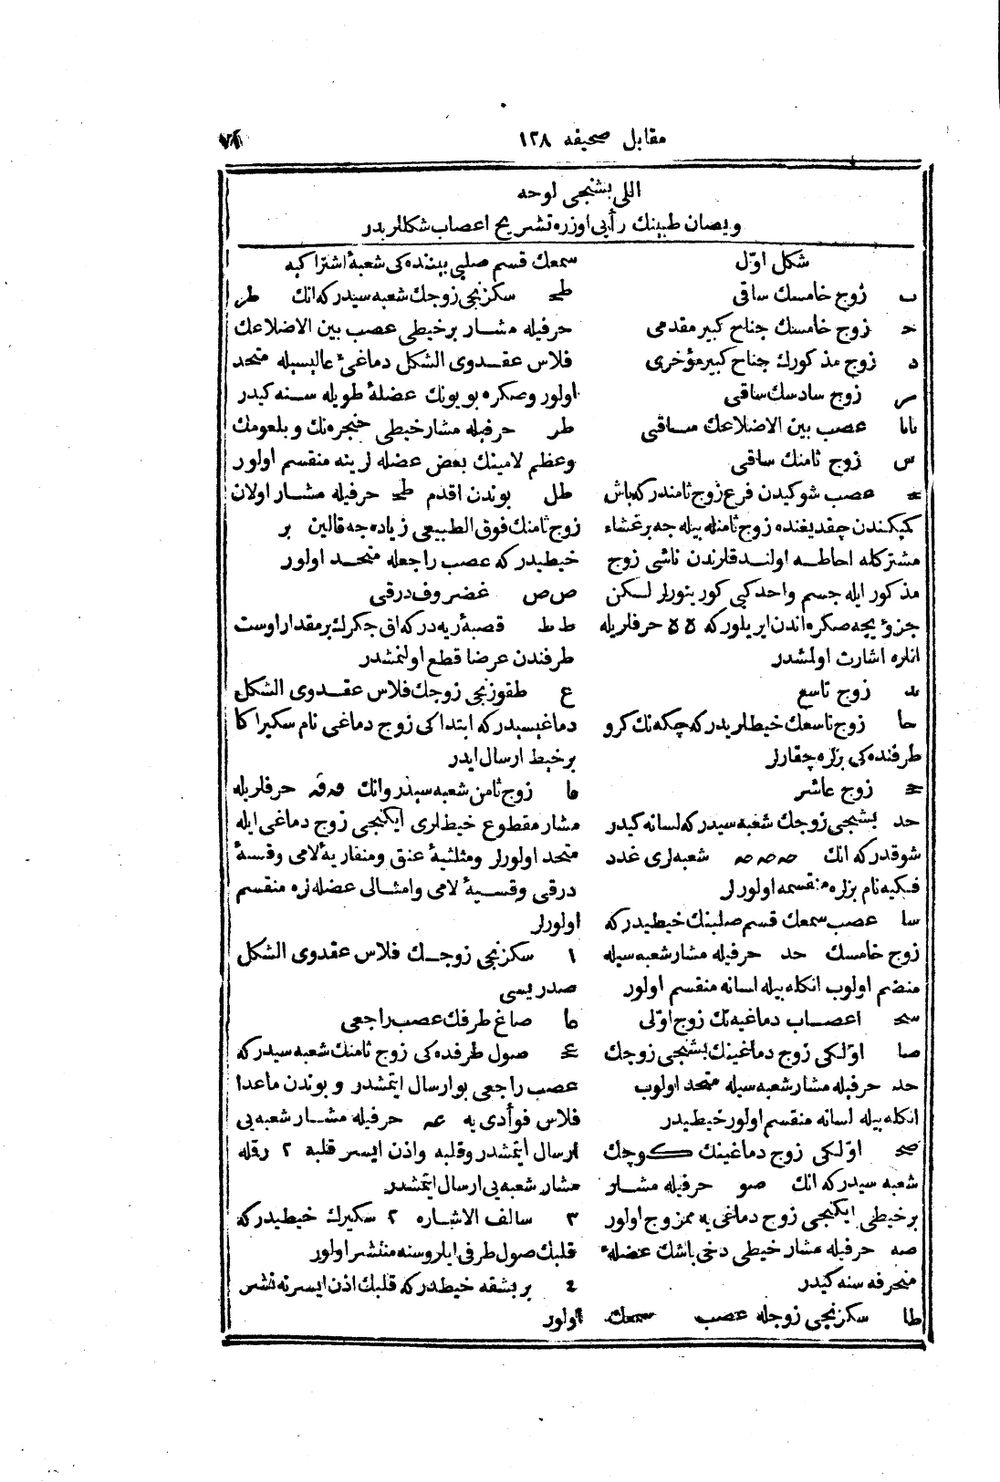 مقابل صحيفه ١٢٨
٧٢
اللی بشنجی لوحه
ويصان طبينك رأيی اوزره تشريح اعصاب شكللريدر
شكل اوّل
ب زوج خامسك ساقی
حـ زوج خامسك جناح كبير مقدمی
د زوج مذكورك جناح كبير مؤخری
زوج سادسك ساقی
عصب بين الاضلاعك ساقی
س زوج ثامنك ساقی
عصب شوكيدن فرع زوج ثامندركه باش
كميكندن چقديغنده زوج ثامنله بيله جه بر غشاء
مشتركله احاطه اولندقلرندن ناشی زوج
مذكور ايله جسم واحد كبی كورينورلر لكن
جزؤيجه صكره اندن ايريلوركه لالا حرفلريله
انلره اشارت اولمشدر
زوج تاسع
حا زوج تاسعك خيطلريدركه چكه نك كرو
طرفنده كی بزلره چقارلر
زوج عاشر
حد بشنجی زوجك شعبه سيدركه لسانه كيدر
شوقدركه انك حه حه حه شعبه لری غدد
فكيه نام بزلره منقسمه اولورلر
سا عصب سمعك قسم صلبنك خيطيدركه
زوج خامسك حد حرفيله مشار شعبه سيله
منضم اولوب انكله بيله لسانه منقسم اولور
سح اعصاب دماغيه نك زوج اوّلی
صا اوّلكی زوج دماغينك بشنجی زوجك
حد حرفيله مشار شعبه سيله متحد اولوب
انكله بيله لسانه منقسم اولور خيطيدر
صح اوّلكی زوج دماغينك كوچك
شعبه سيدركه انك صو حرفيله مشار
بر خيطی ايكنجی زوج دماغی يه ممزوج اولور
صه حرفيله مشار خيطی دخی باشك عضلهٔ
منحرفه سنه كيدر
طا سكزنجی زوجله عصب سمعك
سمعك قسم صلبی بيننده كی شعبهٔ اشتراكيه
طح سكزنجی زوجك شعبه سيدركه انك طر
حرفيله مشار بر خيطی عصب بين الاضلاعك
فلاس عقدوی الشكل دماغئ عاليسيله متحد
اولور وصكره بويونك عضلهٔ طويله سنه كيدر
طر حرفيله مشار خيطی حنجره نك وبلعومك
وعظم لامينك بعض عضله لرينه منقسم اولور
طل بوندن اقدم طح حرفيله مشار اولان
زوج ثامنك فوق الطبيعی زياده جه قالين بر
خيطيدركه عصب راجعله متحد اولور
ص ص غضروف درقی
ط ط قصبهٔ ريه دركه اق جكرك بر مقدار اوست
طرفندن عرضا قطع اولنمشدر
ع طقوزنجی زوجك فلاس عقدوی الشكل
دماغيسيدركه ابتداكی زوج دماغی نام سكيرا كا
بر خيط ارسال ايدر
زوج ثامن شعبه سيدر وانك فه فه حرفلريله
مشار مقطوع خيطلری ايكنجی زوج دماغی ايله
متحد اولورلر ومثلثيهٔ عنق ومنقاريهٔ لامی وقسيهٔ
درقی وقسيهٔ لامی وامثالی عضله لره منقسم
اولورلر
١ سكزنجی زوجك فلاس عقدوی الشكل
صدريسی
صاغ طرفك عصب راجعی
صول طرفده كی زوج ثامنك شعبه سيدركه
عصب راجعی بو ارسال ايتمشدر وبوندن ماعدا
فلاس فوأدی يه عه حرفيله مشار شعبه يی
ارسال ايتمشدر وقلبه واذن ايسر قلبه ٢ رقله
مشار شعبه يی ارسال ايتمشدر
٣ سالف الاشاره ٢ سكيرك خيطيدركه
قلبك صول طرفی ايلروسنه منتشر اولور
٤ بر بشقه خيطدركه قلبك اذن ايسرنه نشر
اولور